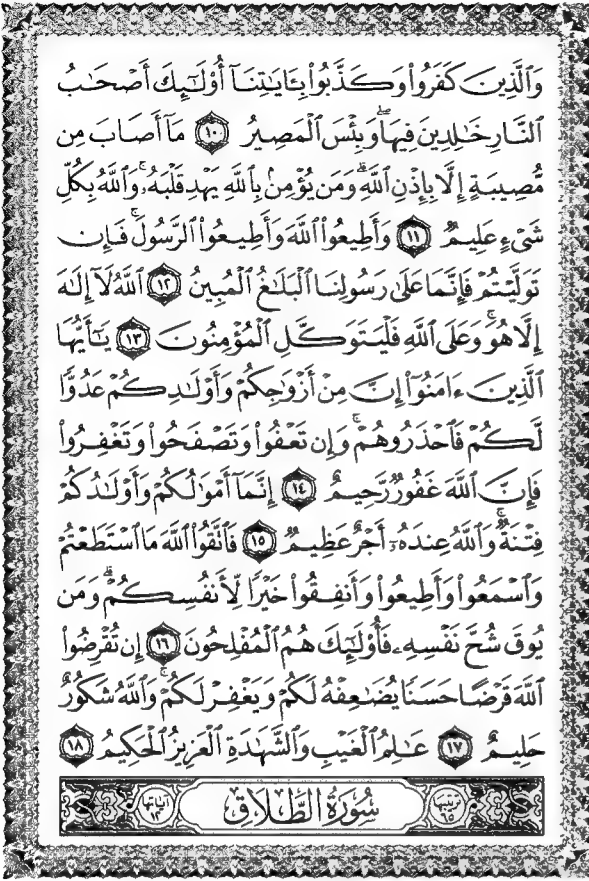 وَٱلَّذِينَ كَفَرُوا۟ وَكَذَّبُوا۟ بِـَٔايَـٰتِنَآ أُو۟لَـٰٓئِكَ أَصْحَـٰبُ
ٱلنَّارِ خَـٰلِدِينَ فِيهَا ۖ وَبِئْسَ ٱلْمَصِيرُ ١٠ مَآ أَصَابَ مِن
مُّصِيبَةٍ إِلَّا بِإِذْنِ ٱللَّهِ ۗ وَمَن يُؤْمِنۢ بِٱللَّهِ يَهْدِ قَلْبَهُۥ ۚ وَٱللَّهُ بِكُلِّ
شَىْءٍ عَلِيمٌ ١١ وَأَطِيعُوا۟ ٱللَّهَ وَأَطِيعُوا۟ ٱلرَّسُولَ ۚ فَإِن
تَوَلَّيْتُمْ فَإِنَّمَا عَلَىٰ رَسُولِنَا ٱلْبَلَـٰغُ ٱلْمُبِينُ ١٢ ٱللَّهُ لَآ إِلَـٰهَ
إِلَّا هُوَ ۚ وَعَلَى ٱللَّهِ فَلْيَتَوَكَّلِ ٱلْمُؤْمِنُونَ ١٣ يَـٰٓأَيُّهَا
ٱلَّذِينَ ءَامَنُوٓا۟ إِنَّ مِنْ أَزْوَٰجِكُمْ وَأَوْلَـٰدِكُمْ عَدُوًّا
لَّكُمْ فَٱحْذَرُوهُمْ ۚ وَإِن تَعْفُوا۟ وَتَصْفَحُوا۟ وَتَغْفِرُوا۟
فَإِنَّ ٱللَّهَ غَفُورٌ رَّحِيمٌ ١٤ إِنَّمَآ أَمْوَٰلُكُمْ وَأَوْلَـٰدُكُمْ
فِتْنَةٌ ۚ وَٱللَّهُ عِندَهُۥٓ أَجْرٌ عَظِيمٌ ١٥ فَٱتَّقُوا۟ ٱللَّهَ مَا ٱسْتَطَعْتُمْ
وَٱسْمَعُوا۟ وَأَطِيعُوا۟ وَأَنفِقُوا۟ خَيْرًا لِّأَنفُسِكُمْ ۗ وَمَن
يُوقَ شُحَّ نَفْسِهِۦ فَأُو۟لَـٰٓئِكَ هُمُ ٱلْمُفْلِحُونَ ١٦ إِن تُقْرِضُوا۟
ٱللَّهَ قَرْضًا حَسَنًا يُضَـٰعِفْهُ لَكُمْ وَيَغْفِرْ لَكُمْ ۚ وَٱللَّهُ شَكُورٌ
حَلِيمٌ ١٧ عَـٰلِمُ ٱلْغَيْبِ وَٱلشَّهَـٰدَةِ ٱلْعَزِيزُ ٱلْحَكِيمُ ١٨
ترتيبها ٦٥ سُورَةُ الطَّلَاقِ آياتها ١٢